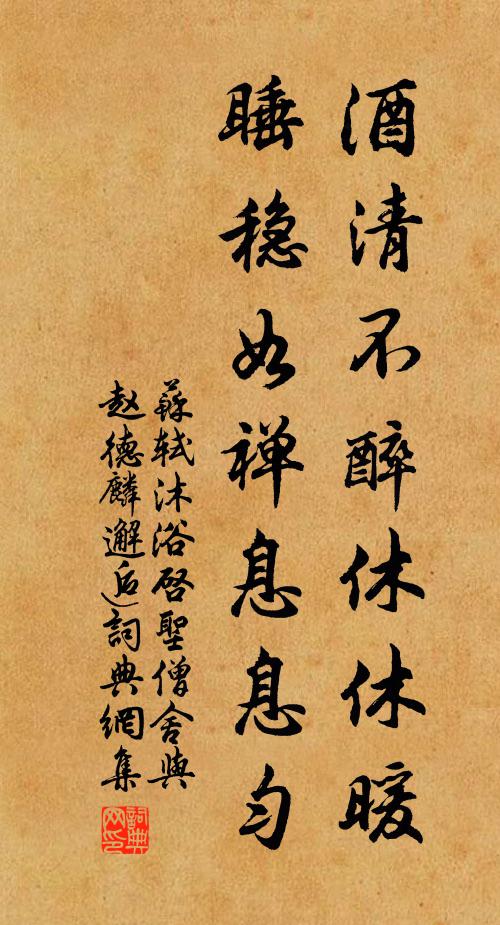 酒清不醉休休暖
睡稳如禅息息匀
蘇轼沐浴啓聖僧舍與
赵德麟邂逅詞典網集
詞典
网印